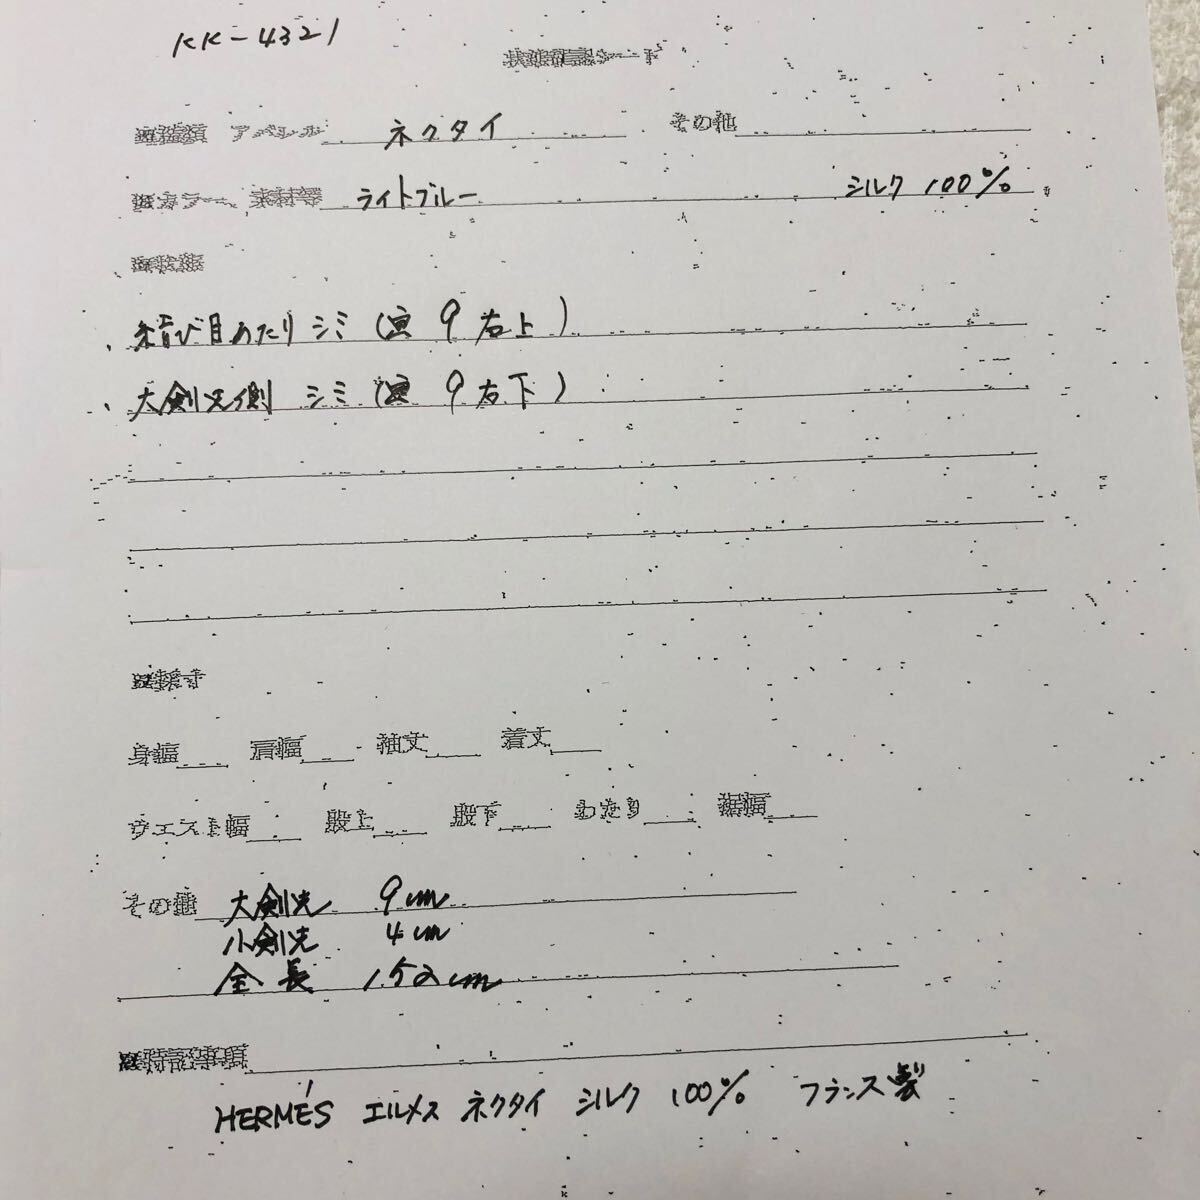 KK-4321
状態確認シート
※種類 アパレル ネクタイ その他
※カラー、素材等 ライトブルー シルク 100%
※状態
・結び目あたり シミ (写 9 右上)
・大剣先側 シミ (写 9 右下)
※採寸
身幅 肩幅 袖丈 着丈
ウエスト幅 股上 股下 わたり 裾幅
その他 大剣先 9cm
小剣先 4cm
全長 152cm
※特記事項
HERMÉS エルメス ネクタイ シルク 100% フランス製